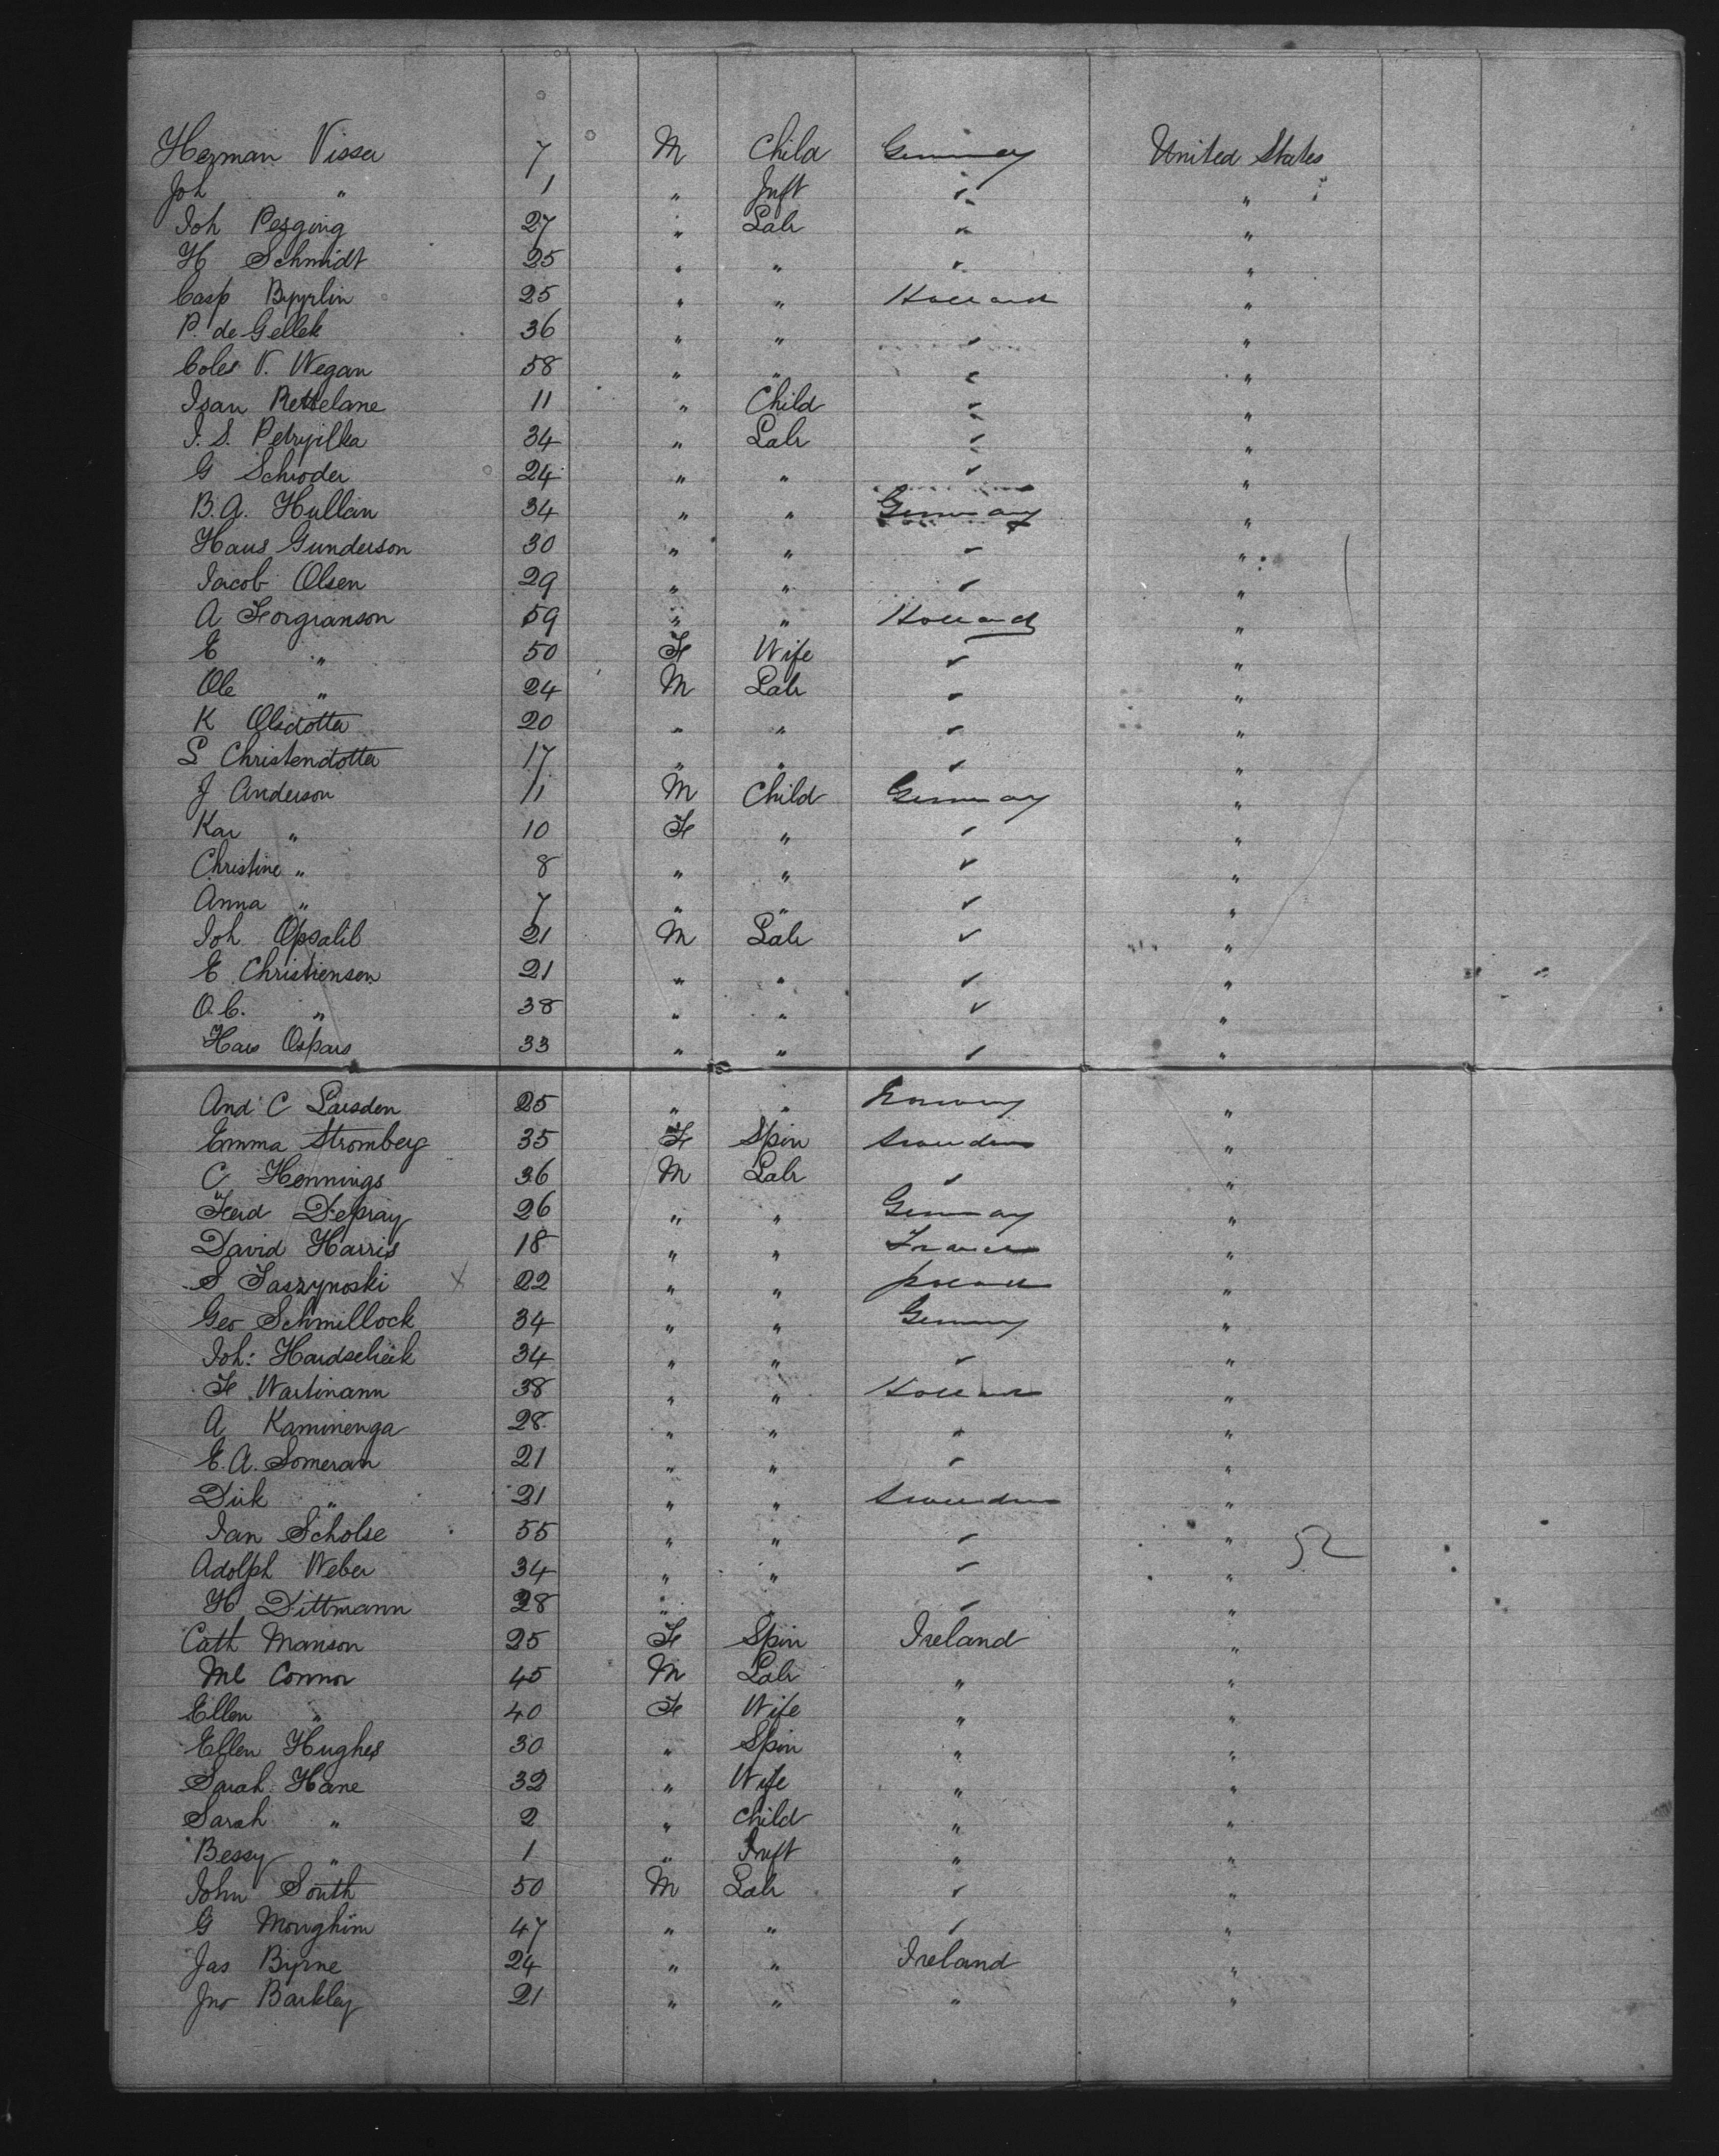 Herman Visser 7 M Child Germany United States
Joh " 1 " Inft ✓ "
Joh Pesging 27 " Labr ✓ "
H Schmidt 25 " " ✓ "
Casp Byyrlin 25 " " Holland "
P. de Gellek 36 " " ✓ "
Coles V. Wegan 58 " " ✓ "
Isan Rettelane 11 " Child ✓ "
I. S. Petryilka 34 " Labr ✓ "
G Schroder 24 " " ✓ "
B. A. Hullan 34 " " Germany "
Hans Gunderson 30 " " ✓ "
Jacob Olsen 29 " " ✓ "
A Forgranson 59 " " Holland "
E " 50 F Wife ✓ "
Ole " 24 M Labr ✓ "
K Olsdotter 20 " " ✓ "
S Christendotter 17 " " ✓ "
J Anderson 11 M Child Germany "
Kar " 10 F " ✓ "
Christine " 8 " " ✓ "
Anna " 7 " " ✓ "
Joh Opsalib 21 M Labr ✓ "
E Christiensen 21 " " ✓ "
O. C. " 38 " " ✓ "
Hans Ospars 33 " " ✓ "
And C Larsden 25 " " Norway "
Emma Stromberg 35 F Spin Sweden "
C Hennings 36 M Labr ✓ "
Ferd Depray 26 " " Germany "
David Harris 18 " " France "
S Jaszynoski x 22 " " Poland "
Geo Schmillock 34 " " Germany "
Joh: Hardscheek 34 " " ✓ "
F Wartmann 38 " " Holland "
A Kaminenga 28 " " " "
E. A. Someran 21 " " ✓ "
Dirk " 21 " " Sweden "
Jan Scholse 55 " " ✓ " 52
Adolph Weber 34 " " ✓ "
H Dittmann 28 " " ✓ "
Cath Manson 25 F Spin Ireland "
Ml Connor 45 M Labr " "
Ellen " 40 F Wife " "
Ellen Hughes 30 " Spin " "
Sarah Hane 32 " Wife " "
Sarah " 2 " Child " "
Bessy " 1 " Inft " "
John South 50 M Labr ✓ "
G Monghim 47 " " ✓ "
Jas Byrne 24 " " Ireland "
Jno Barkley 21 " " " "